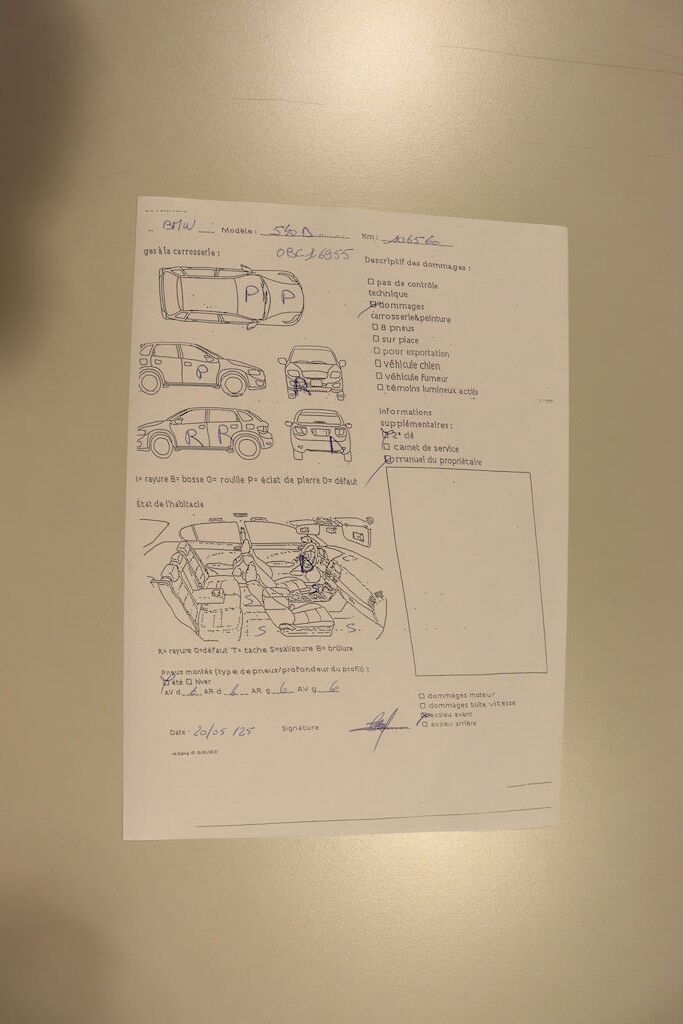 BMW Modèle: 540 D Km: 106560
ges à la carrosserie :
0BC16955
P P
P
R
R R
D
(= rayure B= bosse O= rouille P= éclat de pierre D= défaut
Descriptif des dommages :
pas de contrôle
technique
dommages
carrosserie&peinture
8 pneus
sur place
pour exportation
véhicule chien
véhicule fumeur
témoins lumineux actifs
informations
supplémentaires :
2° clé
carnet de service
manuel du propriétaire
État de l'habitacle
D
S
S
S S
R= rayure O=défaut T= tache S=salissure B= brûlure
Pneus montés (type de pneus/profondeur du profil) :
été hiver
AV d 6 AR d 6 AR g 6 AV g 6
dommages moteur
dommages boîte vitesse
essieu avant
essieu arrière
Date : 20/05/25 Signature